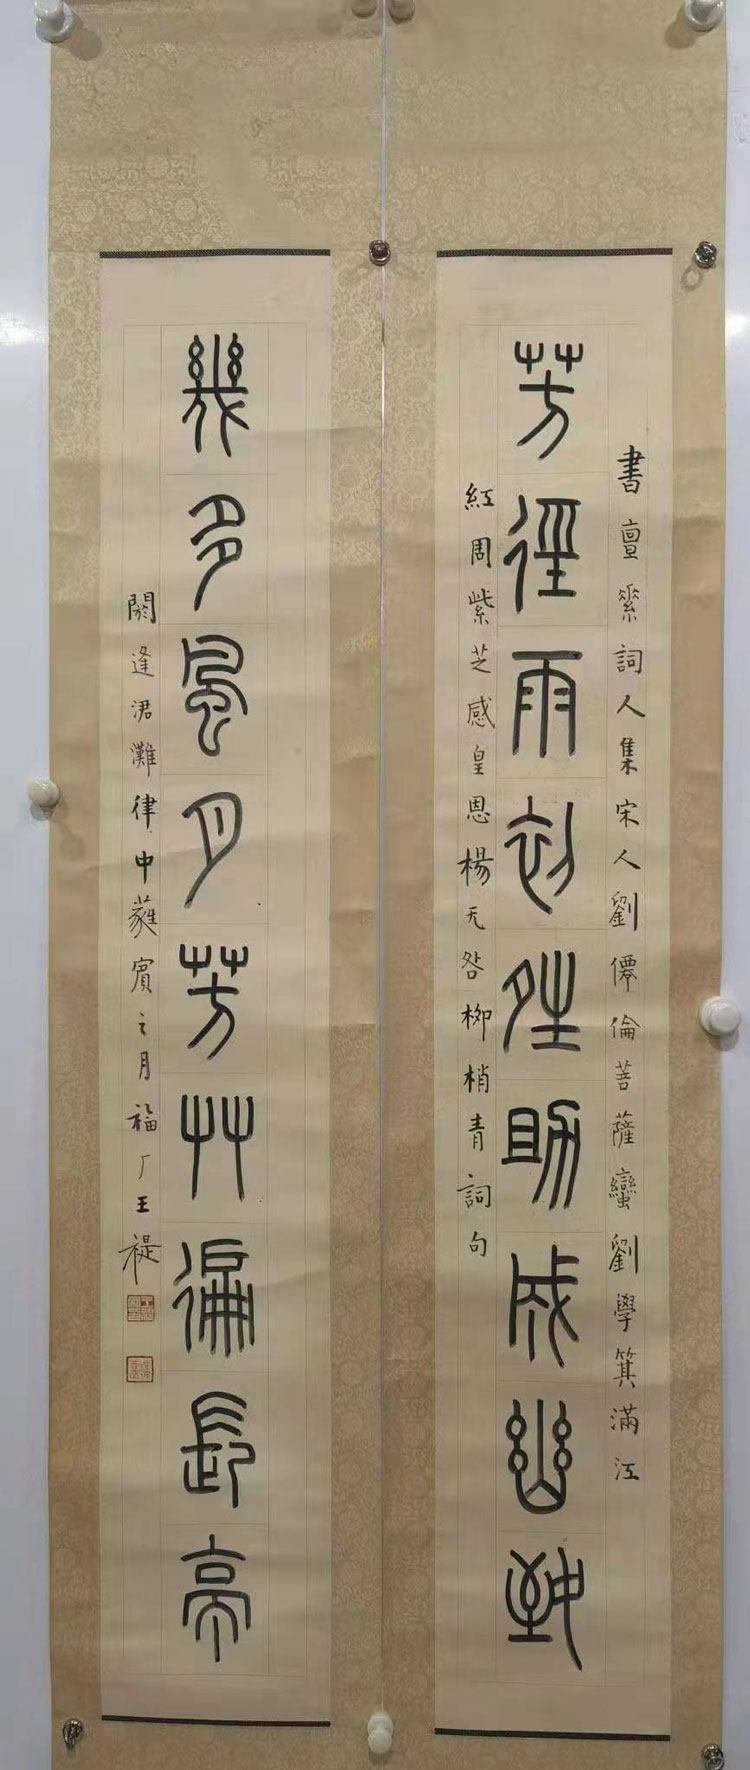 書亶素詞人集宋人劉僊倫菩薩蠻劉學箕滿江
芳徑雨初夝助成幽致
紅周紫芝感皇恩楊无咎柳梢青詞句
幾多風月芳艸徧長亭
閼逢涒灘律中蕤賓之月福厂王禔